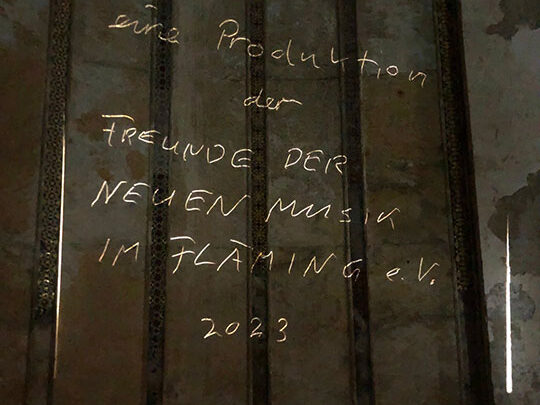 eine Produktion
der
FREUNDE DER
NEUEN MUSIK
IM FLÄMING e.V.
2023